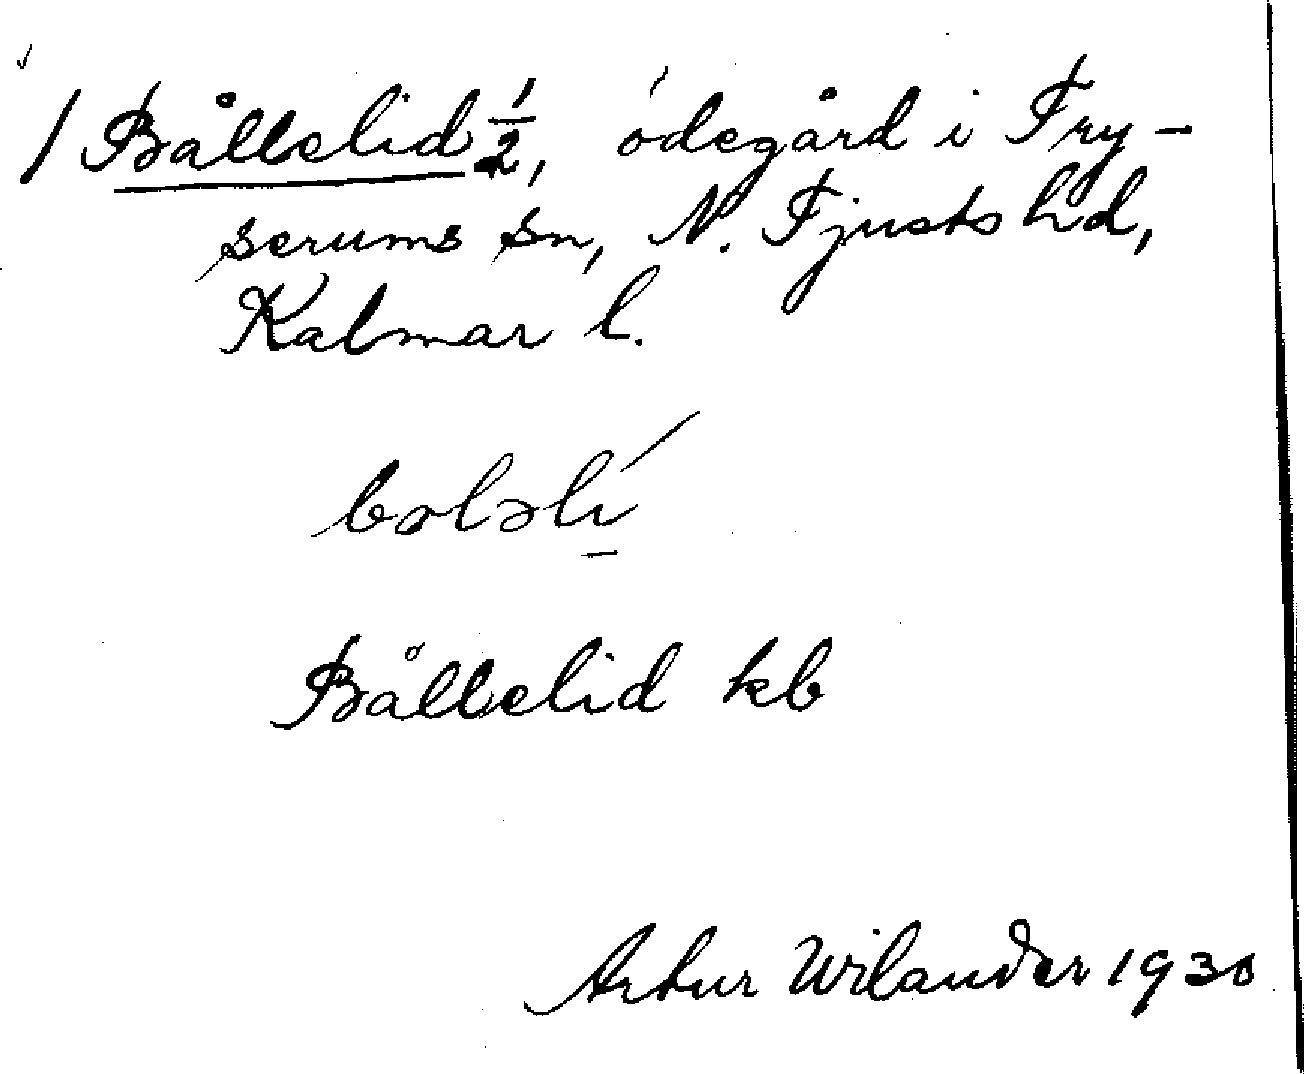 / Bållelid 1/2, ödegård i Try-
serums sn, N. Tjusts hd,
Kalmar l.
boləli
Bållelid kb
Artur Wilander 1930